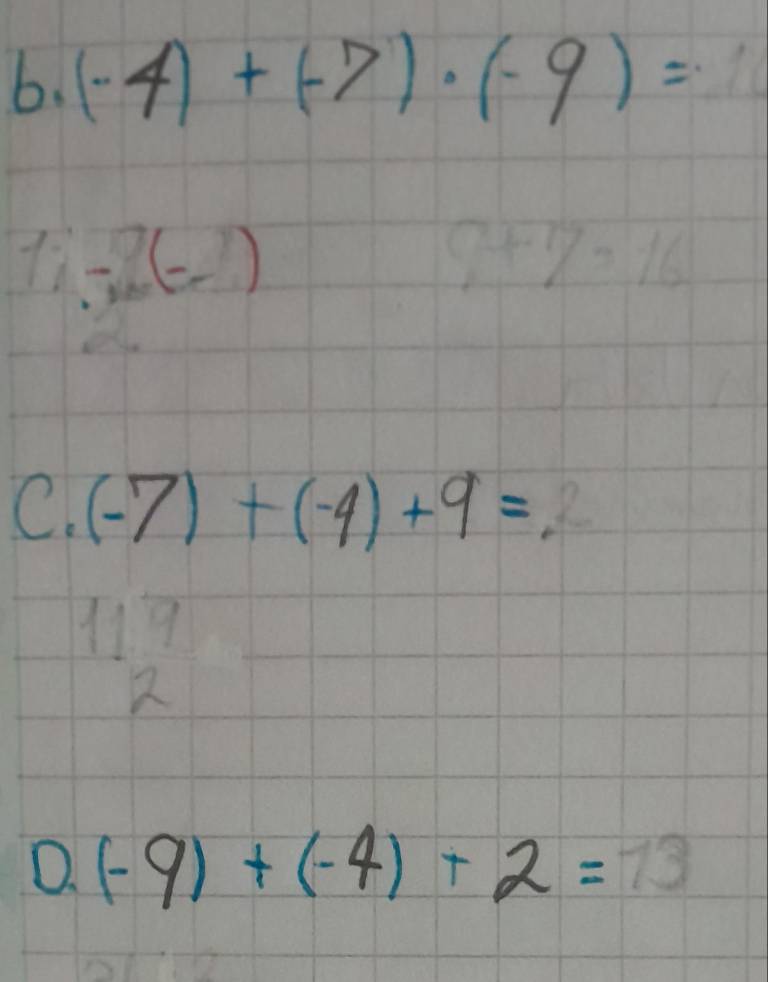 b. (-4) + (-7) · (-9) =
9+7=16
C. (-7) + (-4) + 9 = 2
11 9
2
D. (-9) + (-4) + 2 = 13